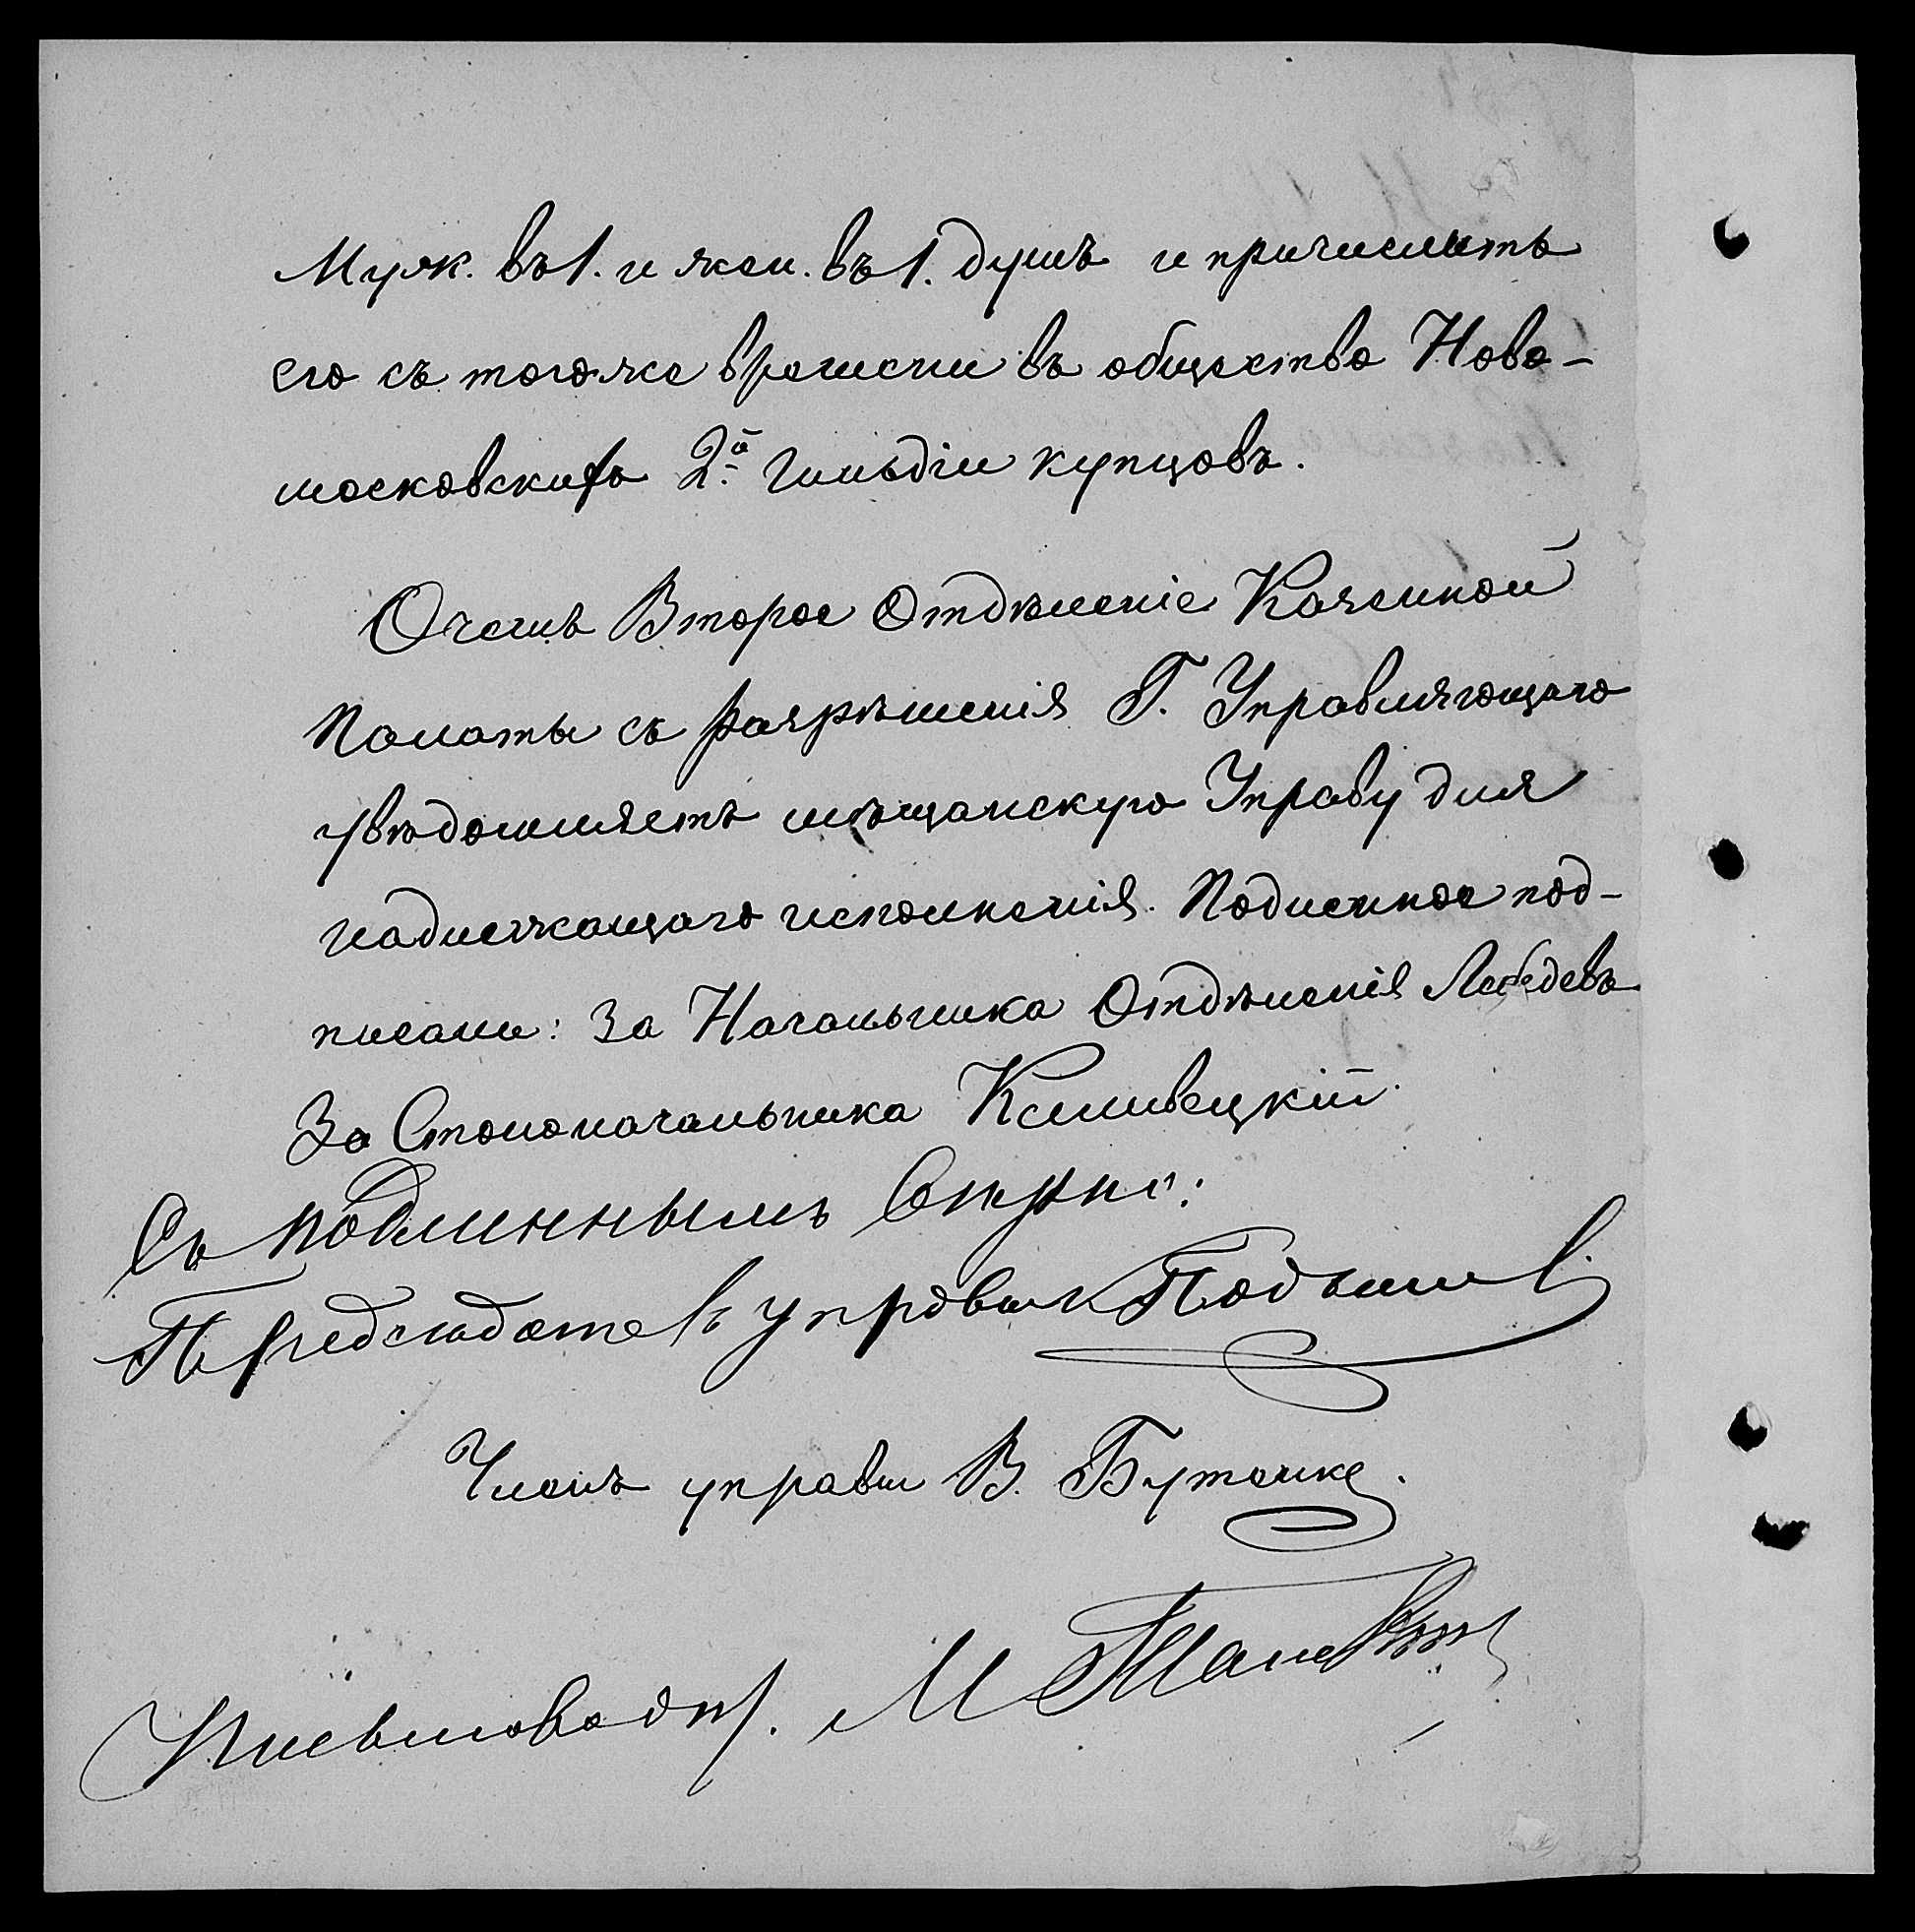 Муж. въ 1. и жен. въ 1. душѣ и причислить
его съ тогоже времени въ общество Ново-
московскихъ 2й гильдіи купцовъ.
Очемъ Второе Отдѣленіе Казенной
Палаты съ разрѣшенія Г. Управляющаго
увѣдомляетъ мѣщанскую Управу для
надлежащаго исполненія. Подлинное под-
писали: За Начальника Отдѣленія Лебедевъ
За Столоначальника Климвецкій
Съ подлиннымъ вѣрно:
Предсѣдатель управы
Членъ управы В. Бутенко.
Письмовод. М